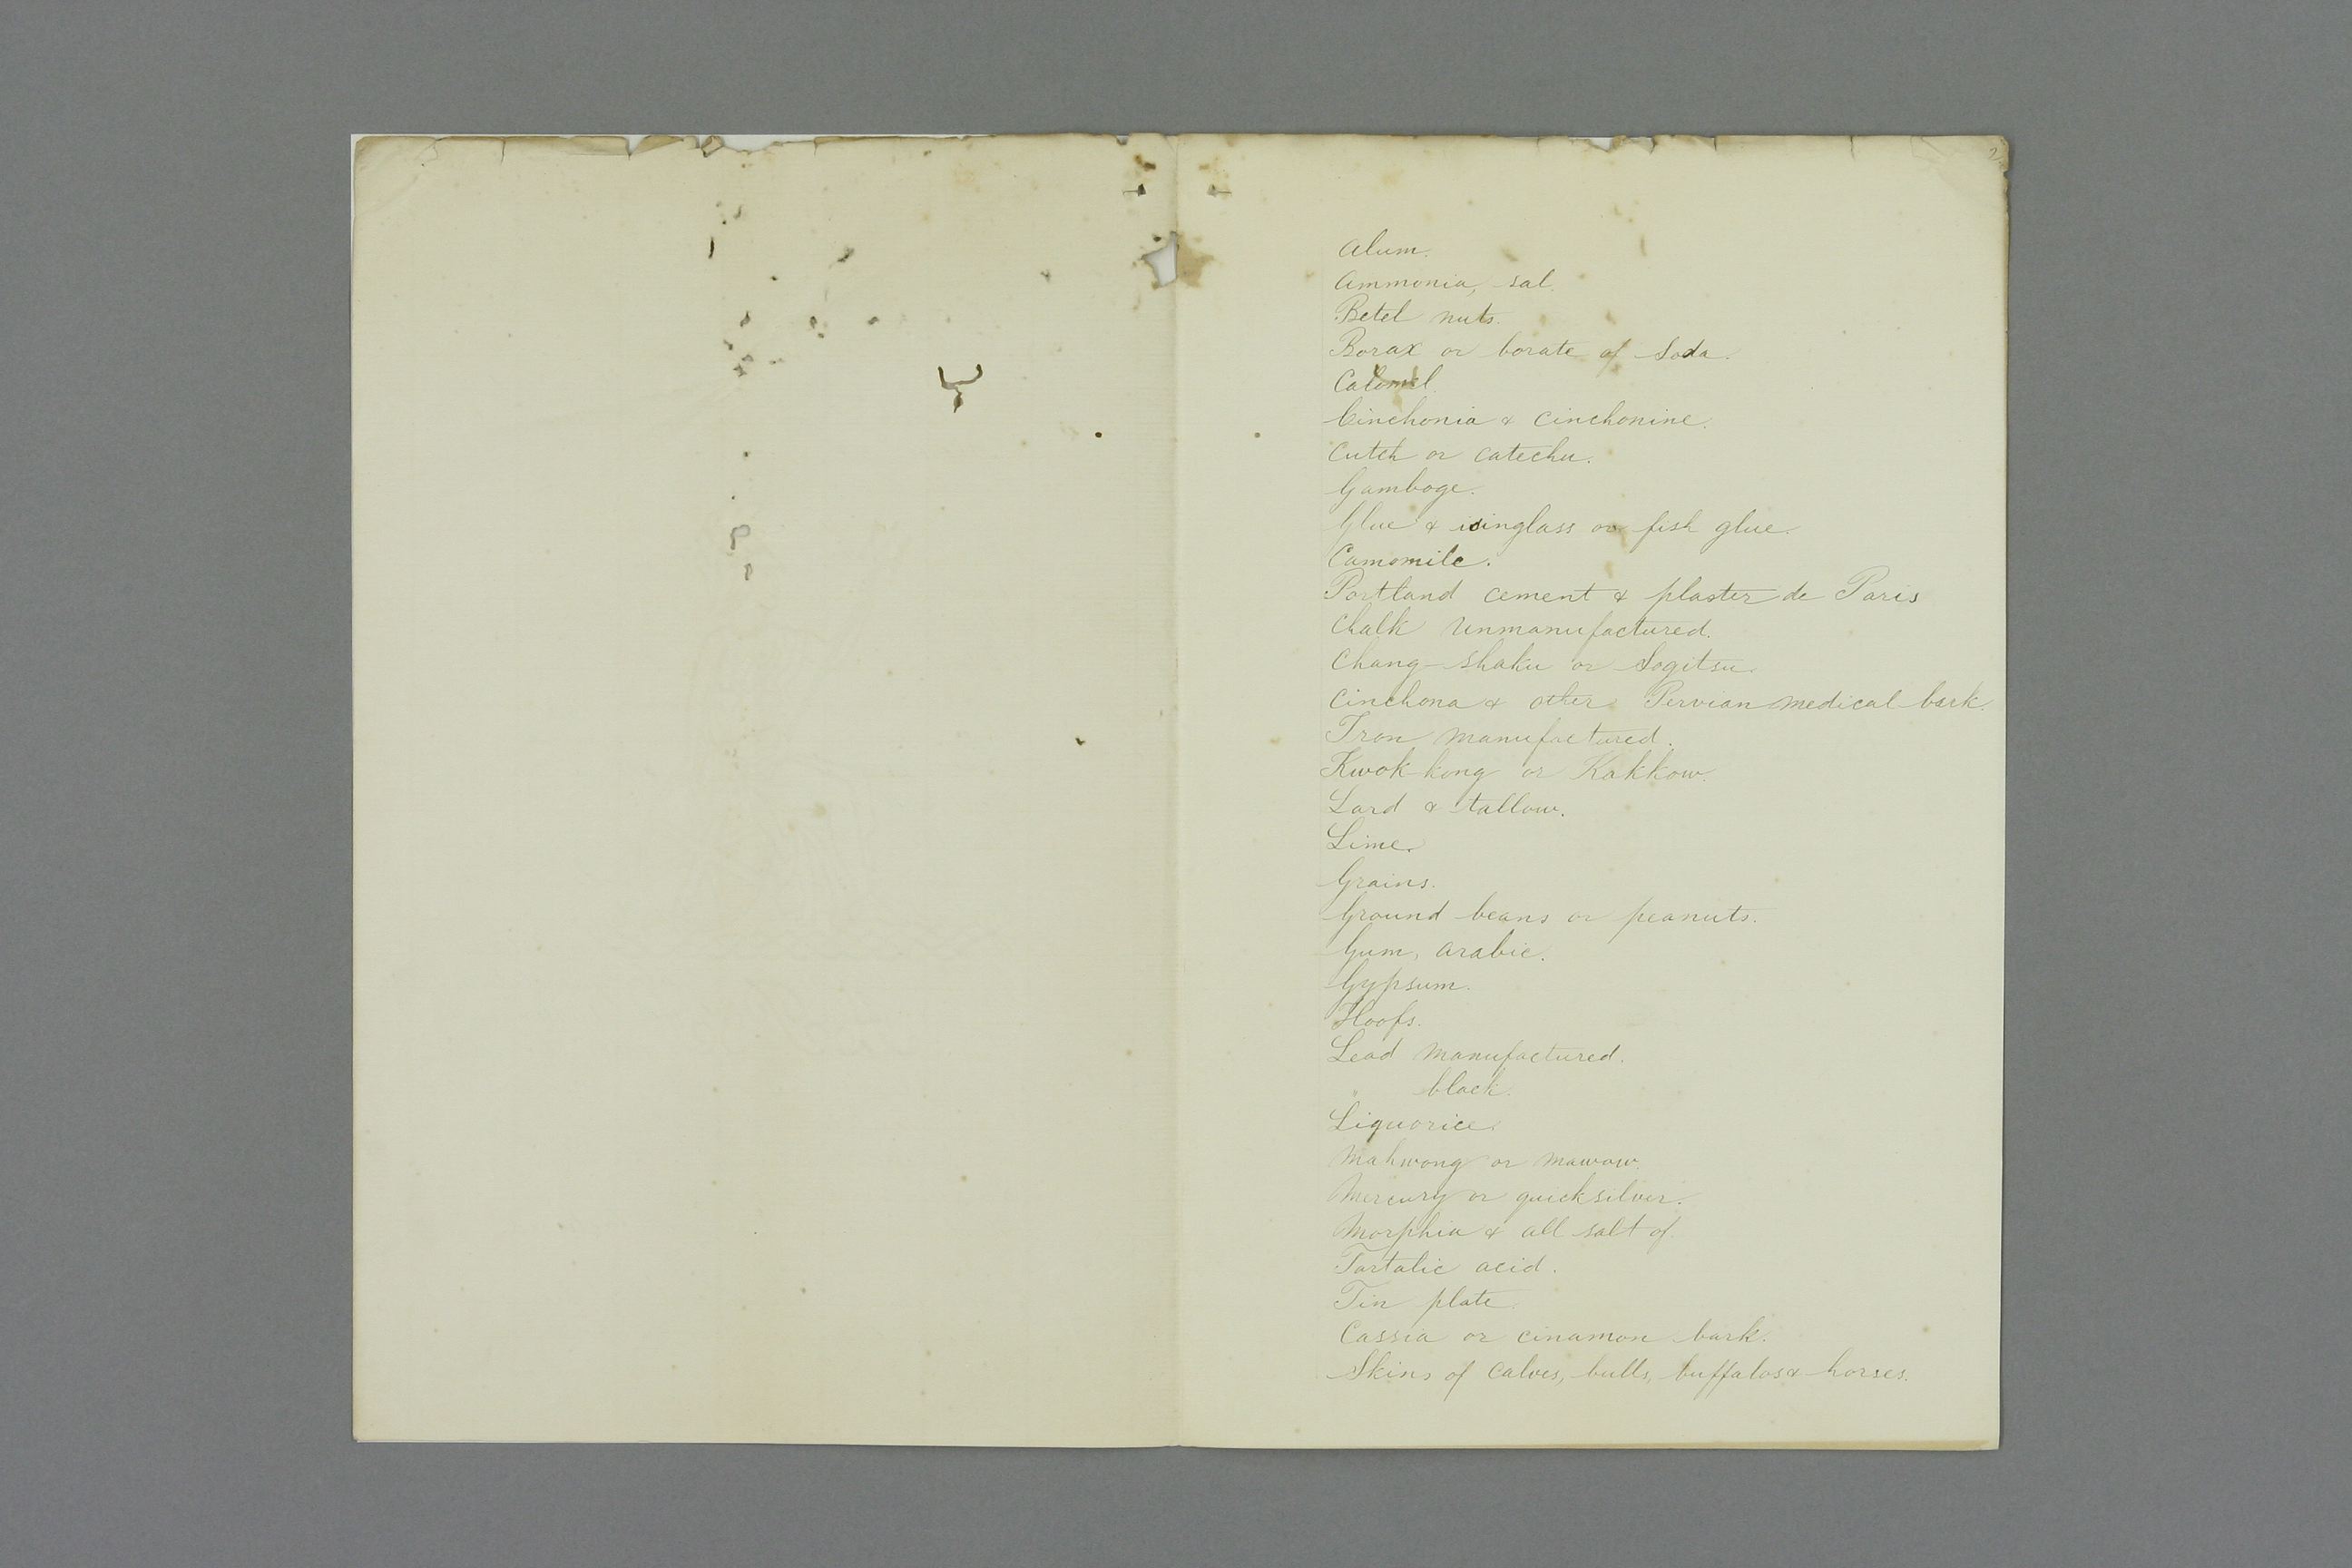 2
Alum.
Ammonia, sal.
Betel nuts.
Borax or borate of Soda.
Calomel.
Cinchonia & cinchonine.
Cutch or catechu.
Gamboge.
Glue & isinglass or fish glue.
Camomile.
Portland cement & plaster de Paris
Chalk unmanufactured.
Chang-shaku or Sogitsu.
Cinchona & other Pervian medical bark.
Iron manufactured.
Kwok-kong or Kakkow.
Lard & tallow.
Lime.
Grains.
Ground beans or peanuts.
Gum, arabic.
Gypsum.
Hoofs.
Lead manufactured.
" black.
Liquorice.
Mahwong or mawow.
Mercury or quicksilver.
Morphia & all salt of.
Tartalic acid.
Tin plate.
Cassia or cinamon bark.
Skins of calves, bulls, buffalos & horses.